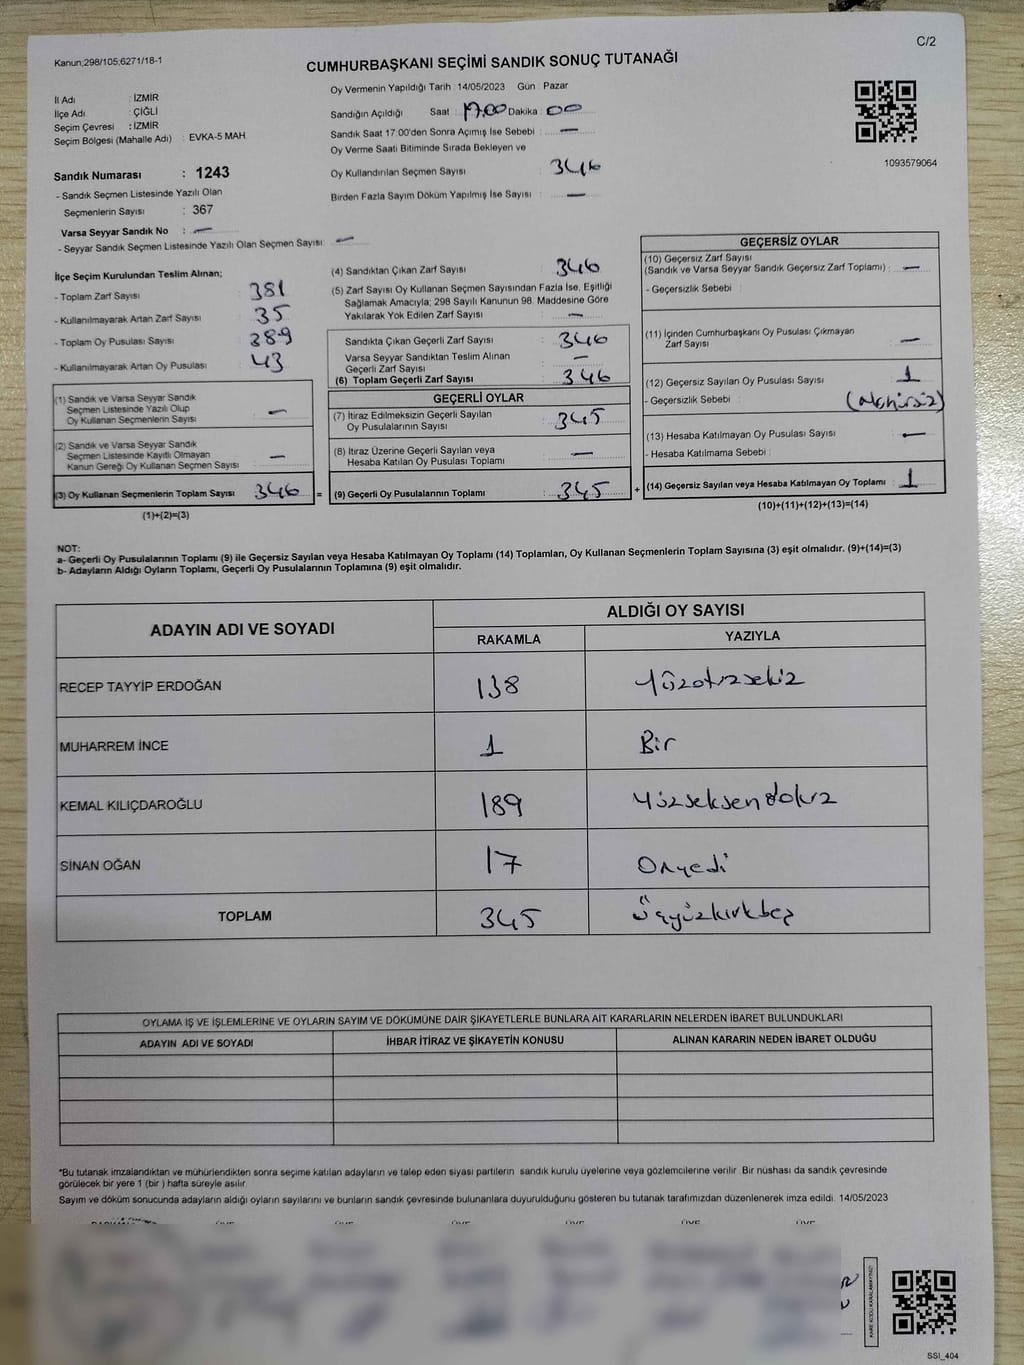 C/2
Kanun;298/105;6271/18-1
CUMHURBAŞKANI SEÇİMİ SANDIK SONUÇ TUTANAĞI
İl Adı : İZMİR
İlçe Adı : ÇİĞLİ
Seçim Çevresi : İZMİR
Seçim Bölgesi (Mahalle Adı) : EVKA-5 MAH.
Sandık Numarası : 1243
- Sandık Seçmen Listesinde Yazılı Olan
Seçmenlerin Sayısı : 367
Varsa Seyyar Sandık No : —
- Seyyar Sandık Seçmen Listesinde Yazılı Olan Seçmen Sayısı: —
Oy Vermenin Yapıldığı Tarih 14/05/2023 Gün : Pazar
Sandığın Açıldığı Saat 17.00 Dakika : 00
Sandık Saat 17.00'den Sonra Açımış İse Sebebi : —
Oy Verme Saati Bitiminde Sırada Bekleyen ve
Oy Kullandırılan Seçmen Sayısı : 346
Birden Fazla Sayım Döküm Yapılmış İse Sayısı : —
1093579064
İlçe Seçim Kurulundan Teslim Alınan;
- Toplam Zarf Sayısı : 381
- Kullanılmayarak Artan Zarf Sayısı : 35
- Toplam Oy Pusulası Sayısı : 389
- Kullanılmayarak Artan Oy Pusulası : 43
(1) Sandık ve Varsa Seyyar Sandık
Seçmen Listesinde Yazılı Olup
Oy Kullanan Seçmenlerin Sayısı : —
(2) Sandık ve Varsa Seyyar Sandık
Seçmen Listesinde Kayıtlı Olmayan
Kanun Gereği Oy Kullanan Seçmen Sayısı : —
(3) Oy Kullanan Seçmenlerin Toplam Sayısı : 346 =
(1)+(2)=(3)
(4) Sandıktan Çıkan Zarf Sayısı : 346
(5) Zarf Sayısı Oy Kullanan Seçmen Sayısından Fazla İse, Eşitliği
Sağlamak Amacıyla; 298 Sayılı Kanunun 98. Maddesine Göre
Yakılarak Yok Edilen Zarf Sayısı : —
Sandıkta Çıkan Geçerli Zarf Sayısı : 346
Varsa Seyyar Sandıktan Teslim Alınan
Geçerli Zarf Sayısı : —
(6) Toplam Geçerli Zarf Sayısı : 346
GEÇERLİ OYLAR
(7) İtiraz Edilmeksizin Geçerli Sayılan
Oy Pusulalarının Sayısı : 345
(8) İtiraz Üzerine Geçerli Sayılan veya
Hesaba Katılan Oy Pusulası Toplamı : —
(9) Geçerli Oy Pusulalarının Toplamı : 345 +
GEÇERSİZ OYLAR
(10) Geçersiz Zarf Sayısı
(Sandık ve Varsa Seyyar Sandık Geçersiz Zarf Toplamı) : —
- Geçersizlik Sebebi :
(11) İçinden Cumhurbaşkanı Oy Pusulası Çıkmayan
Zarf Sayısı : —
(12) Geçersiz Sayılan Oy Pusulası Sayısı : 1
- Geçersizlik Sebebi : (Mühürsüz)
(13) Hesaba Katılmayan Oy Pusulası Sayısı : —
- Hesaba Katılmama Sebebi :
(14) Geçersiz Sayılan veya Hesaba Katılmayan Oy Toplamı : 1
(10)+(11)+(12)+(13)=(14)
NOT:
a- Geçerli Oy Pusulalarının Toplamı (9) ile Geçersiz Sayılan veya Hesaba Katılmayan Oy Toplamı (14) Toplamları, Oy Kullanan Seçmenlerin Toplam Sayısına (3) eşit olmalıdır. (9)+(14)=(3)
b- Adayların Aldığı Oyların Toplamı, Geçerli Oy Pusulalarının Toplamına (9) eşit olmalıdır.
ADAYIN ADI VE SOYADI
ALDIĞI OY SAYISI
RAKAMLA YAZIYLA
RECEP TAYYİP ERDOĞAN 138 Yüzotuzsekiz
MUHARREM İNCE 1 Bir
KEMAL KILIÇDAROĞLU 189 Yüzseksendokuz
SİNAN OĞAN 17 Onyedi
TOPLAM 345 Üçyüzkırkbeş
OYLAMA İŞ VE İŞLEMLERİNE VE OYLARIN SAYIM VE DÖKÜMÜNE DAİR ŞİKAYETLERLE BUNLARA AİT KARARLARIN NELERDEN İBARET BULUNDUKLARI
ADAYIN ADI VE SOYADI İHBAR İTİRAZ VE ŞİKAYETİN KONUSU ALINAN KARARIN NEDEN İBARET OLDUĞU
*Bu tutanak imzalandıktan ve mühürlendikten sonra seçime katılan adayların ve talep eden siyasi partilerin sandık kurulu üyelerine veya gözlemcilerine verilir. Bir nüshası da sandık çevresinde
görülecek bir yere 1 (bir ) hafta süreyle asılır.
Sayım ve döküm sonucunda adayların aldığı oyların sayılarını ve bunların sandık çevresinde bulunanlara duyurulduğunu gösteren bu tutanak tarafımızdan düzenlenerek imza edildi. 14/05/2023
ÜYE ÜYE ÜYE ÜYE ÜYE ÜYE
KARE KODU KARALAMAYINIZ!
SSI_404